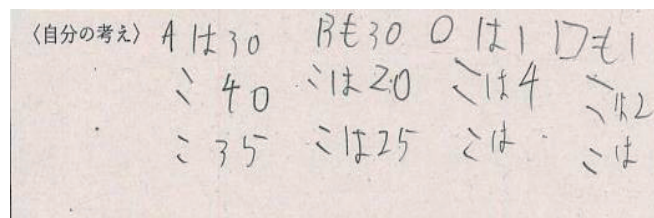 〈自分の考え〉 Aは30 Bも30 Oは1 Dも1
こ 40 こは20 こは4 こは2
こ 35 こは25 こは こは